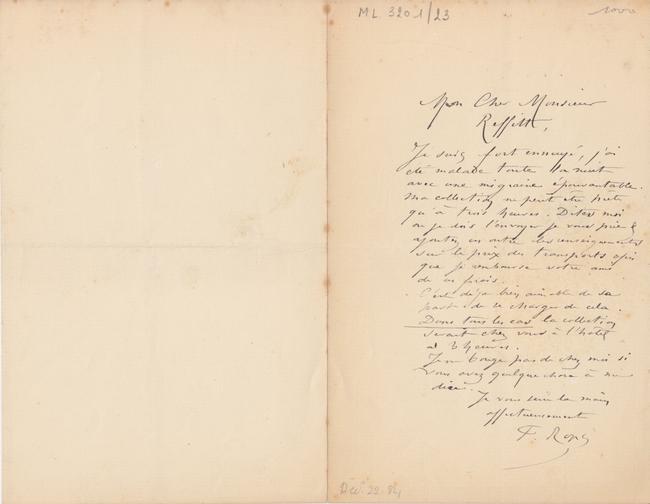 ML. 3201/23
Mon Cher Monsieur
Je suis fort ennuyé, j'ai
été malade toute la nuit
avec une migraine épouvantable.
Ma collection ne peut être prête
qu'à trois heures. Dites moi
où je dois l'envoyer je vous prie &
ajoutez en outre les renseignements
sur le prix des transports afin
que je rembourse votre ami
de ses frais.
C'est déjà bien aimable de sa
part de se charger de cela.
Dans tous les cas la collection
serait chez vous à l'hôtel
à 3 heures.
Je ne bouge pas de chez moi si
vous avez quelque chose à me
dire.
Je vous serre la main
affectueusement
F. Rops
Déc. 22. 84